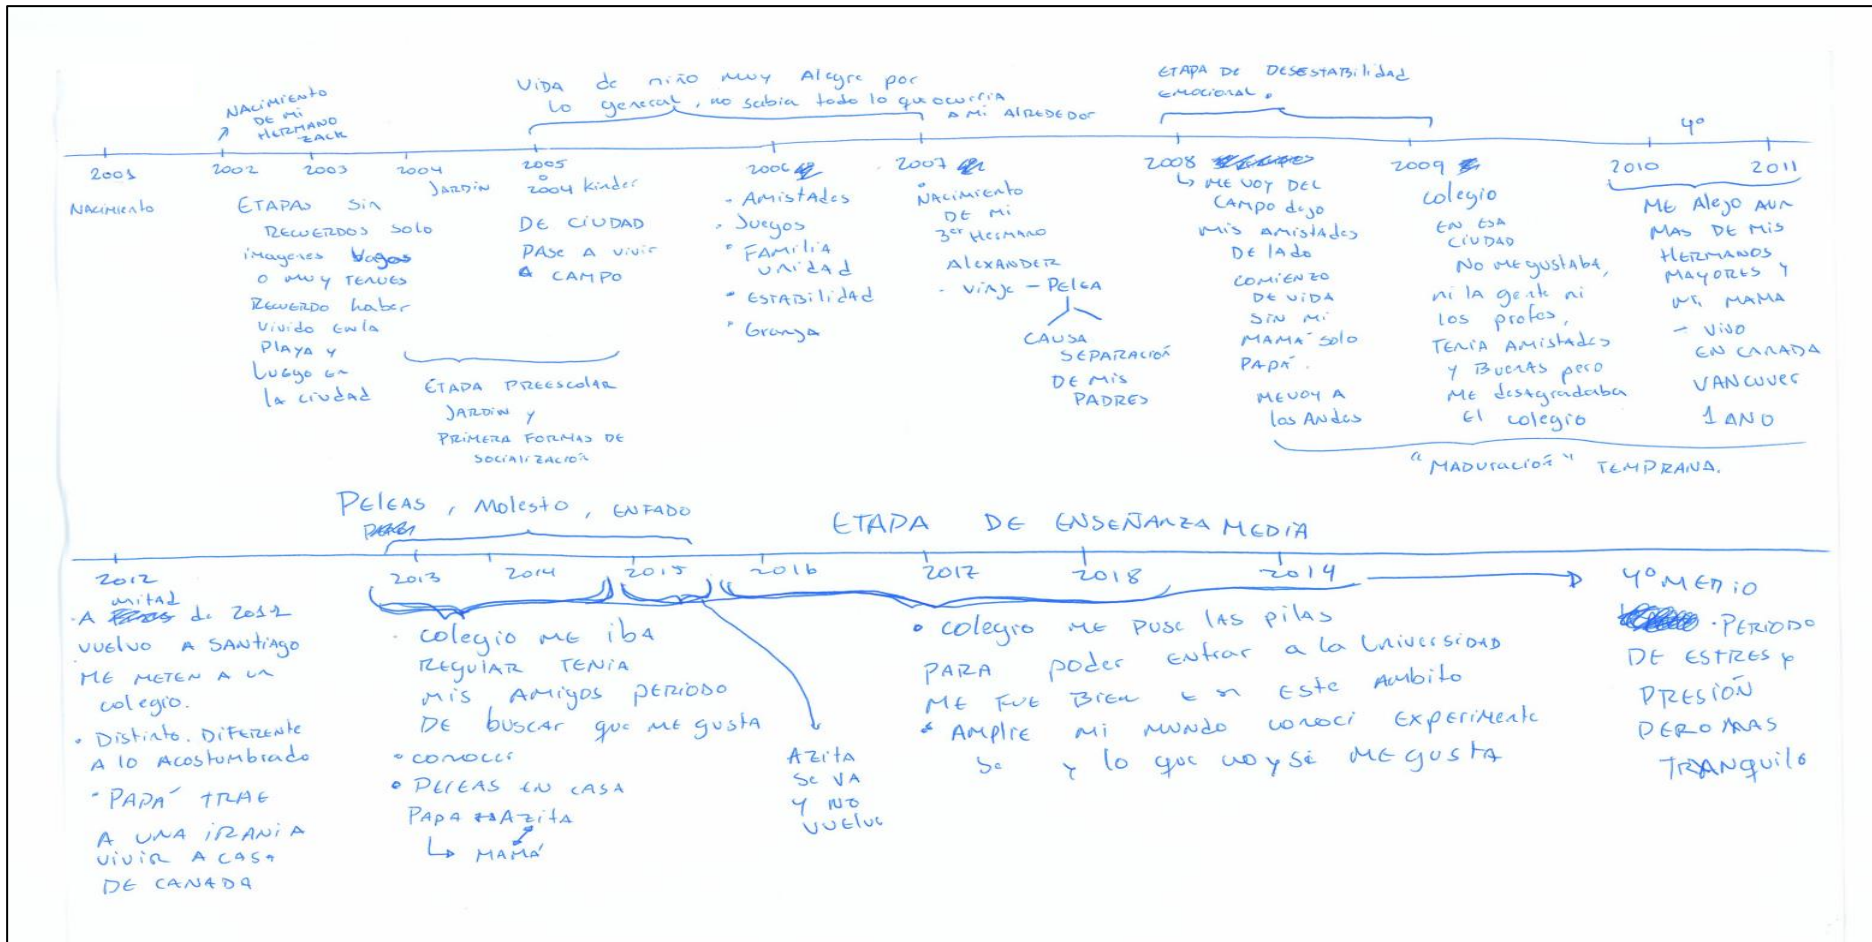 NACIMIENTO
DE MI
HERMANO
ZACK
VIDA de niño muy Alegre por
lo general, no sabia todo lo que ocurria
A MI AlREDEDOR
ETAPA DE DESESTABIlidAd
EMOCIONAl.
4º
2001
2002
2003
2004
2005
2006
2007
2008
2009
2010
2011
NACIMIENTO
ETAPAS SiN
RECUERDOS SOlO
imagenes Vagas
O muy TENUES
RECUERDO haber
Vivido EN la
PlAYA y
Luego en
la ciudad
JARDIN
ETAPA PREESCOLAR
JARDIN y
PRIMERA FORMAS DE
SOCIALIZACIÓN
2004 kinder
DE CiUDAD
PASE A VIVIR
A CAMPO
- AMISTAdES
- Juegos
• FAMiLiA
UNIDAD
• ESTABILIDAD
• Granja
NACIMIENTO
DE Mi
3er HERMANO
AlEXANDER
- VIAJE - PELEA
CAUSA
SEPARACIÓN
DE MIS
PADRES
↳ ME VOY DEL
CAMPO dejo
MIS AMISTADES
DE lado
COMIENZO
DE VIDA
SIN MI
MAMÁ SOLO
PAPÁ.
ME VOY A
los Andes
colegio
EN ESA
CIUDAD
No ME gUSTABA,
ni la gente ni
los profes,
TENIA AMISTADES
y BUENAS pero
ME desagradaba
El colegio
ME Alejo AUN
MAS DE MIS
HERMANOS
MAYORES Y
MI MAMA
- VIVO
EN CANADA
VANCUVER
1 ANO
"MADURACIÓN" TEMPRANA.
PELEAS, Molesto, ENFADO
ETAPA DE ENSEÑANZA MEDIA
2012
2013
2014
2015
2016
2017
2018
2014
mitad
- A de 2012
VUELVO A SANTIAGO
ME METEN A UN
colegio.
• Distinto. DIFERENTE
A lO Acostumbrado
- PAPÁ TRAE
A UNA IRANIA
VIVIR A CASA
DE CANADA
- colegio ME iba
REgulAR TENIA
MIS AMIgos PERIODO
DE buscar que ME GUSTA
• conocer
• PELEAS EN CASA
PAPA ↔ AZITA
↳ MAMÁ
AZITA
SE VA
Y NO
VUELVE
• COLEGIO ME PUSE lAS pilAS
PARA poder ENTRAR a la UNIVERSIDAD
ME FUE BIEN EN ESTE Ambito
• AMPliE Mi MUNDO conoci EXPERIMENTE
Se y lo que no y sé ME gUSTA
4º MEDIO
- PERIODO
DE ESTRES y
PRESIÓN
PERO MAS
TRANquilo